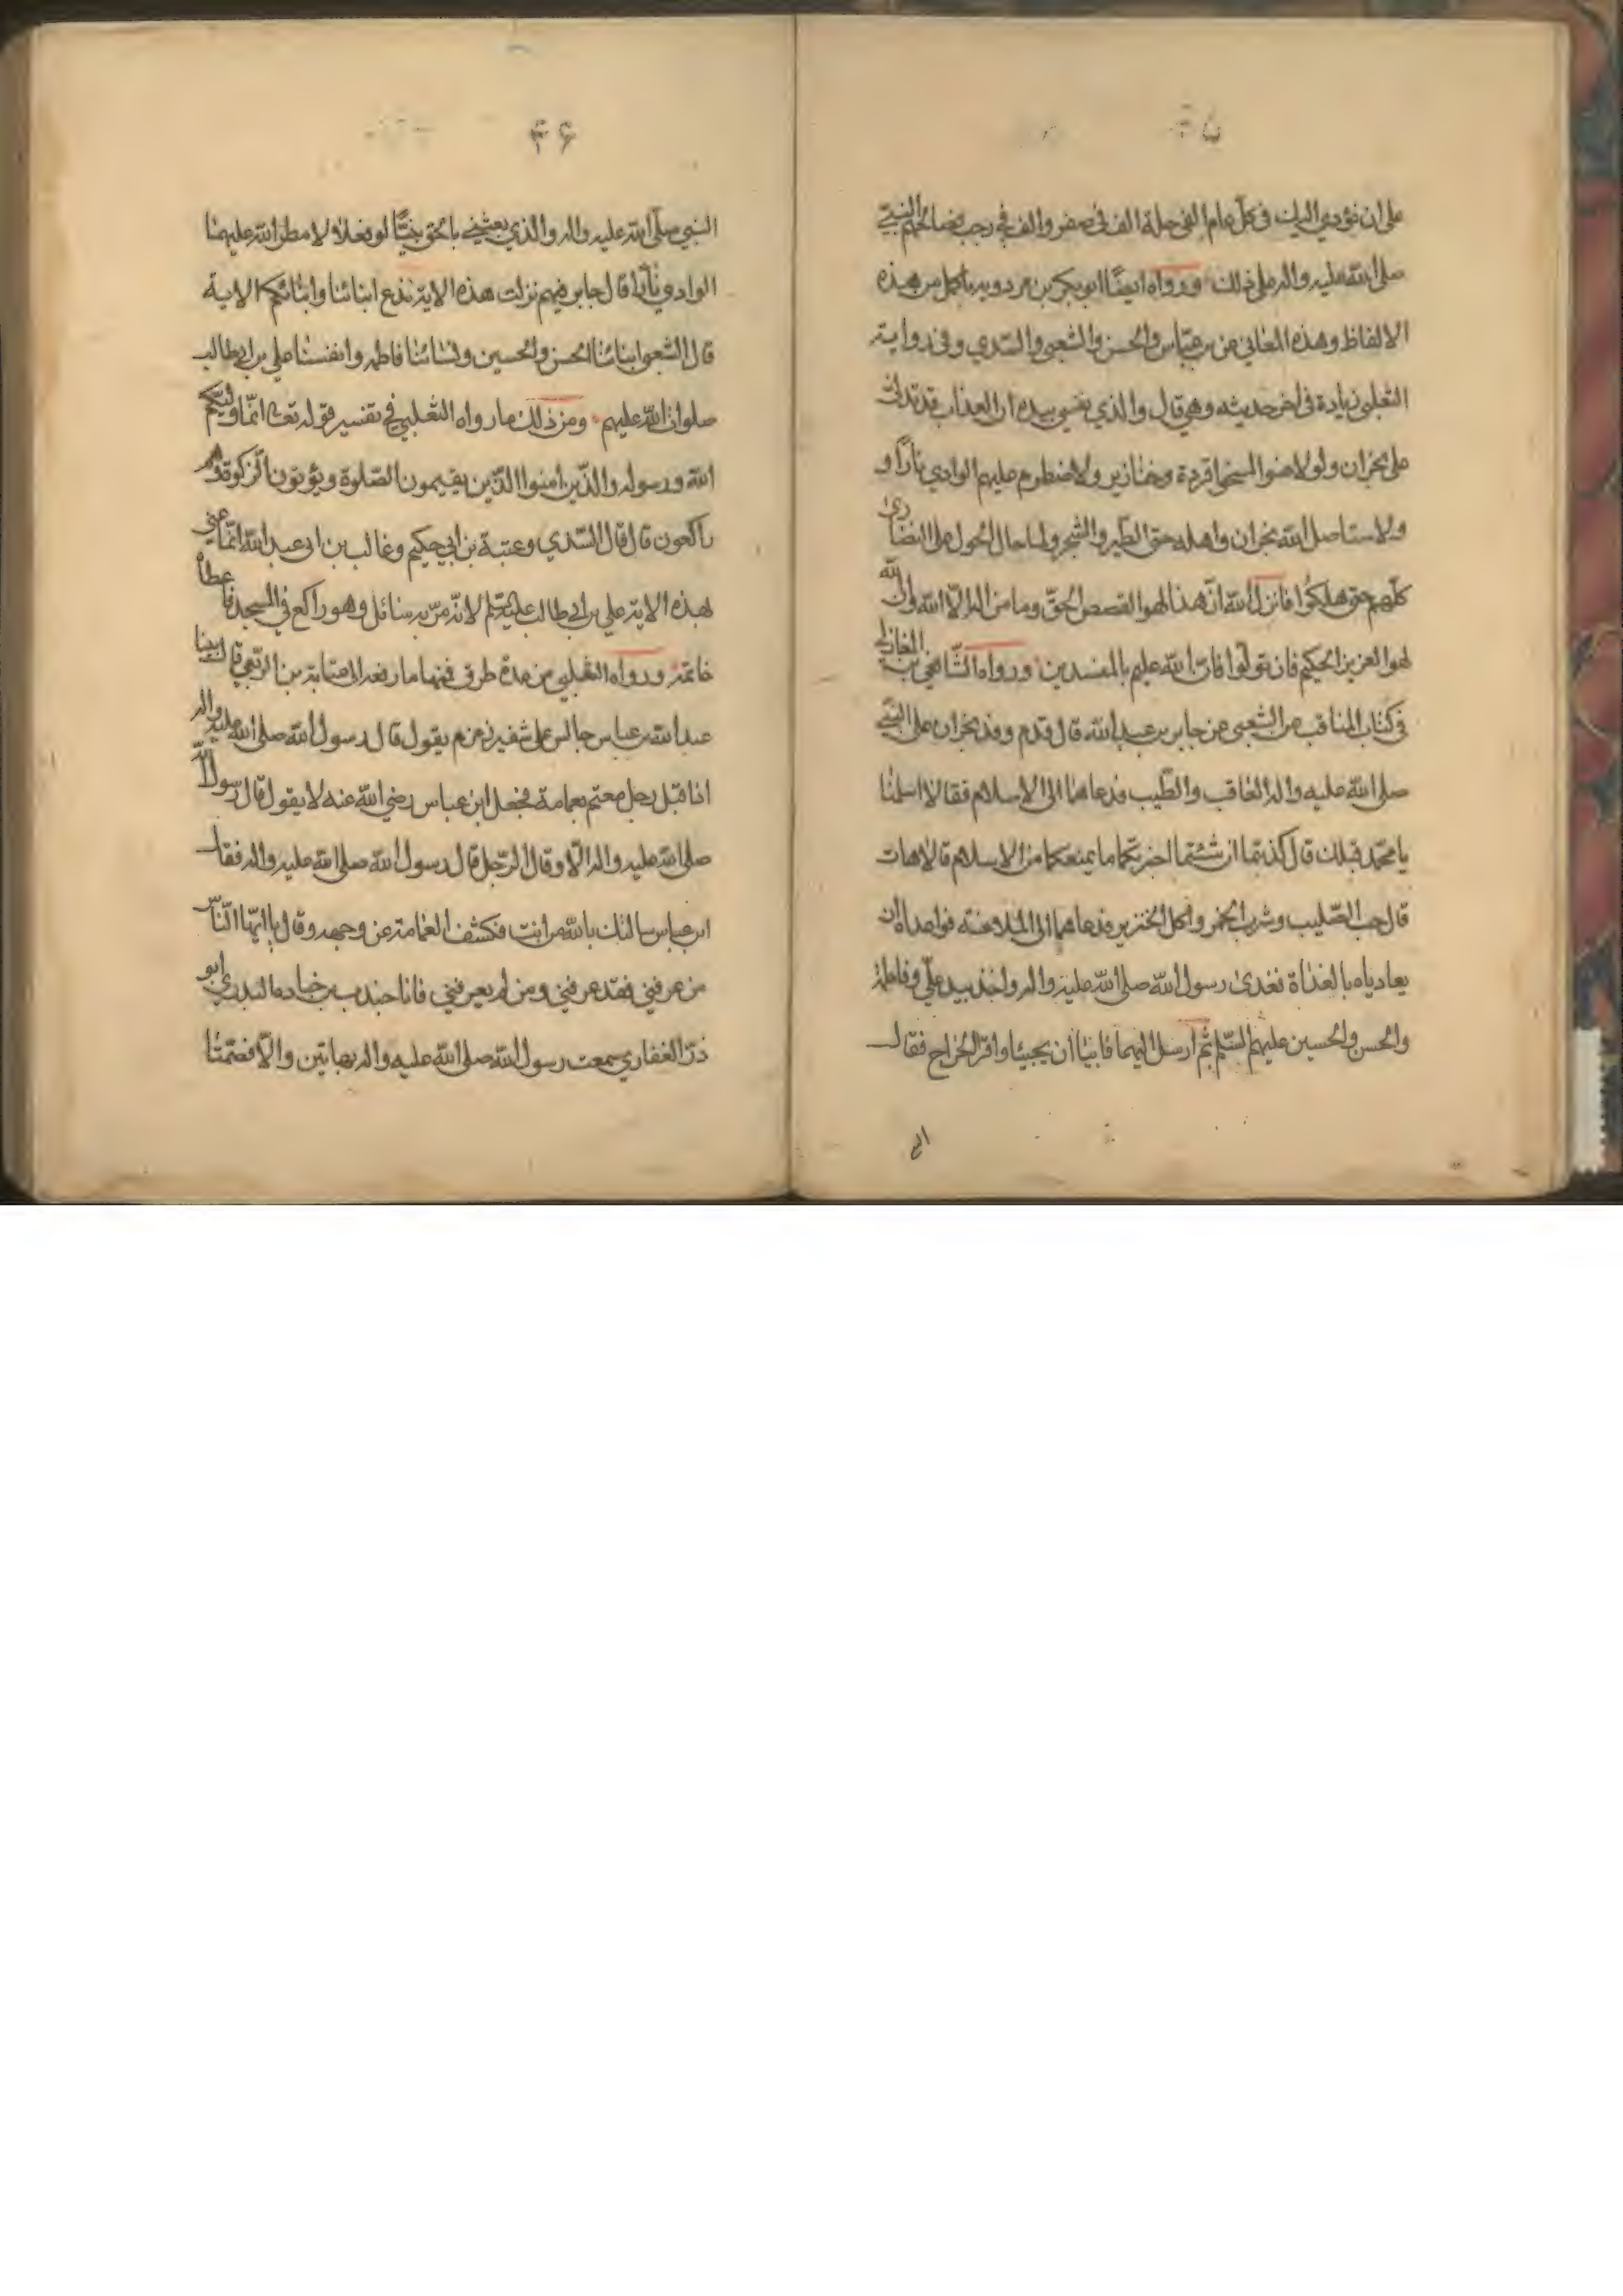 على ان نؤدي اليك في كل عام الفي حلة الف في صفر والف في رجب فصالحهم النبي
صلى الله عليه واله على ذلك ورواه ايضا ابو بكر بن مردويه باكمل من هذه
الالفاظ وهذه المعاني عن بن عباس والحسن والشعبي والسدي وفي رواية
الثعلبي زيادة في اخر حديثه وهي قال والذي نفسي بيده ان العذاب قد تدلى
على نجران ولو لاعنوا لمسخوا قردة وخنازير ولاضطرم عليهم الوادي نارا و
ولاستاصل الله نجران واهله حتى الطير والشجر ولما حال الحول على النصارى
كلهم حتى هلكوا فانزل الله ان هذا لهو القصص الحق وما من اله الا الله وان الله
لهو العزيز الحكيم فان تولوا فان الله عليم بالمفسدين ورواه الشافعي بن المغازلي
في كتاب المناقب عن الشعبي عن جابر بن عبد الله قال قدم وفد نجران على النبي
صلى الله عليه واله العاقب والطيب فدعاهما الى الاسلام فقالا اسلمنا
يا محمد قبلك قال كذبتما ان شئتما اخبرتكما ما يمنعكما من الاسلام قالا هات
قال حب الصليب وشرب الخمر واكل الخنزير فدعاهما الى الملاعنة فواعداه ان
يغادياه بالغداة فغدى رسول الله صلى الله عليه واله واخذ بيد علي وفاطمة
والحسن والحسين عليهم السلم ثم ارسل اليهما فابيا ان يجيئا واقرا الخراج فقال
النبي
۳۶
النبي صلى الله عليه واله والذي بعثني بالحق نبيا لو فعلا لامطر الله عليهما
الوادي نارا قال جابر فيهم نزلت هذه الاية ندع ابنائنا وابنائكم الاية
قال الشعبي ابنائنا الحسن والحسين ونسائنا فاطمه وانفسنا علي بن ابي طالب
صلوات الله عليهم ومن ذلك ما رواه الثعلبي في تفسير قوله تعالى انما وليكم
الله ورسوله والذين امنوا الذين يقيمون الصلوة ويؤتون الزكوة وهم
راكعون قال قال السدي وعتبة بن ابي حكيم وغالب بن ابي عبد الله انما عنى
بهذه الاية علي بن ابي طالب عليه السلم لانه مر به سائل وهو راكع في المسجد فاعطاه
خاتمه ورواه الثعلبي من عدة طرق فمنها ما رفعه الى عباية بن الربعي قال بينا
عبد الله بن عباس جالس على شفير زمزم يقول قال رسول الله صلى الله عليه واله
اذا قبل رجل معتم بعمامة فجعل ابن عباس رضي الله عنه لا يقول قال رسول الله
صلى الله عليه واله الا وقال الرجل قال رسول الله صلى الله عليه واله فقال
ابن عباس سالتك بالله من انت فكشف العمامة عن وجهه وقال يا ايها الناس
من عرفني فقد عرفني ومن لم يعرفني فانا جندب بن جنادة البدري ابو
ذر الغفاري سمعت رسول الله صلى الله عليه واله بهاتين والا فصمتا